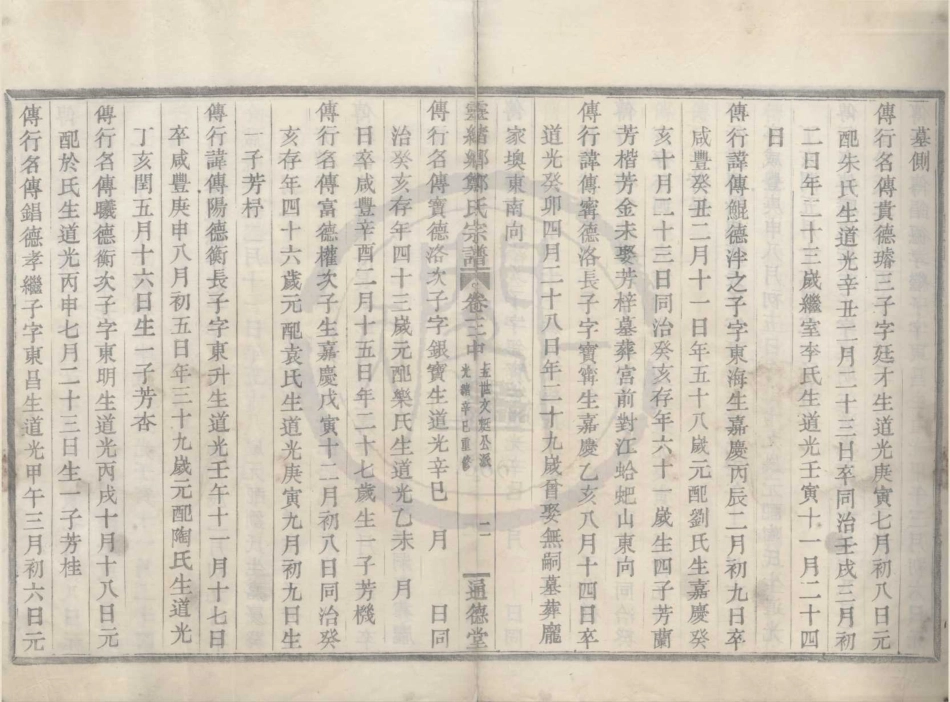 墓側
傳行名傳貴德瑧三子字廷才生道光庚寅七月初八日元
配朱氏生道光辛丑二月二十三日卒同治壬戌三月初
二日年二十三歲繼室李氏生道光壬寅十一月二十四
日
傳行諱傳鯤德泮之子字東海生嘉慶丙辰二月初九日卒
咸豐癸丑二月十一日年五十八歲元配劉氏生嘉慶癸
亥十月二十三日同治癸亥存年六十一歲生四子芳蘭
芳楷芳金未娶芳梓墓葬宮前對江蛤蚆山東向
傳行諱傳寗德洛長子字寶寗生嘉慶乙亥八月十四日卒
道光癸卯四月二十八日年二十九歲曾娶無嗣墓葬龐
家墺東南向
靈緒鄉鄭氏宗譜 卷二中 五世文 公派 光緒辛巳重修 二 通德堂
傳行名傳寶德洛次子字銀寶生道光辛巳 月 日同
治癸亥存年四十三歲元配樂氏生道光乙未 月
日卒咸豐辛酉二月十五日年二十七歲生一子芳機
傳行名傳富德權次子生嘉慶戊寅十二月初八日同治癸
亥存年四十六歲元配袁氏生道光庚寅九月初九日生
一子芳杼
傳行諱傳陽德衡長子字東升生道光壬午十一月十七日
卒咸豐庚申八月初五日年三十九歲元配陶氏生道光
丁亥閏五月十六日生一子芳杏
傳行名傳曦德衡次子字東明生道光丙戌十月十八日元
配於氏生道光丙申七月二十三日生一子芳桂
傳行名傳錩德孝繼子字東昌生道光甲午三月初六日元